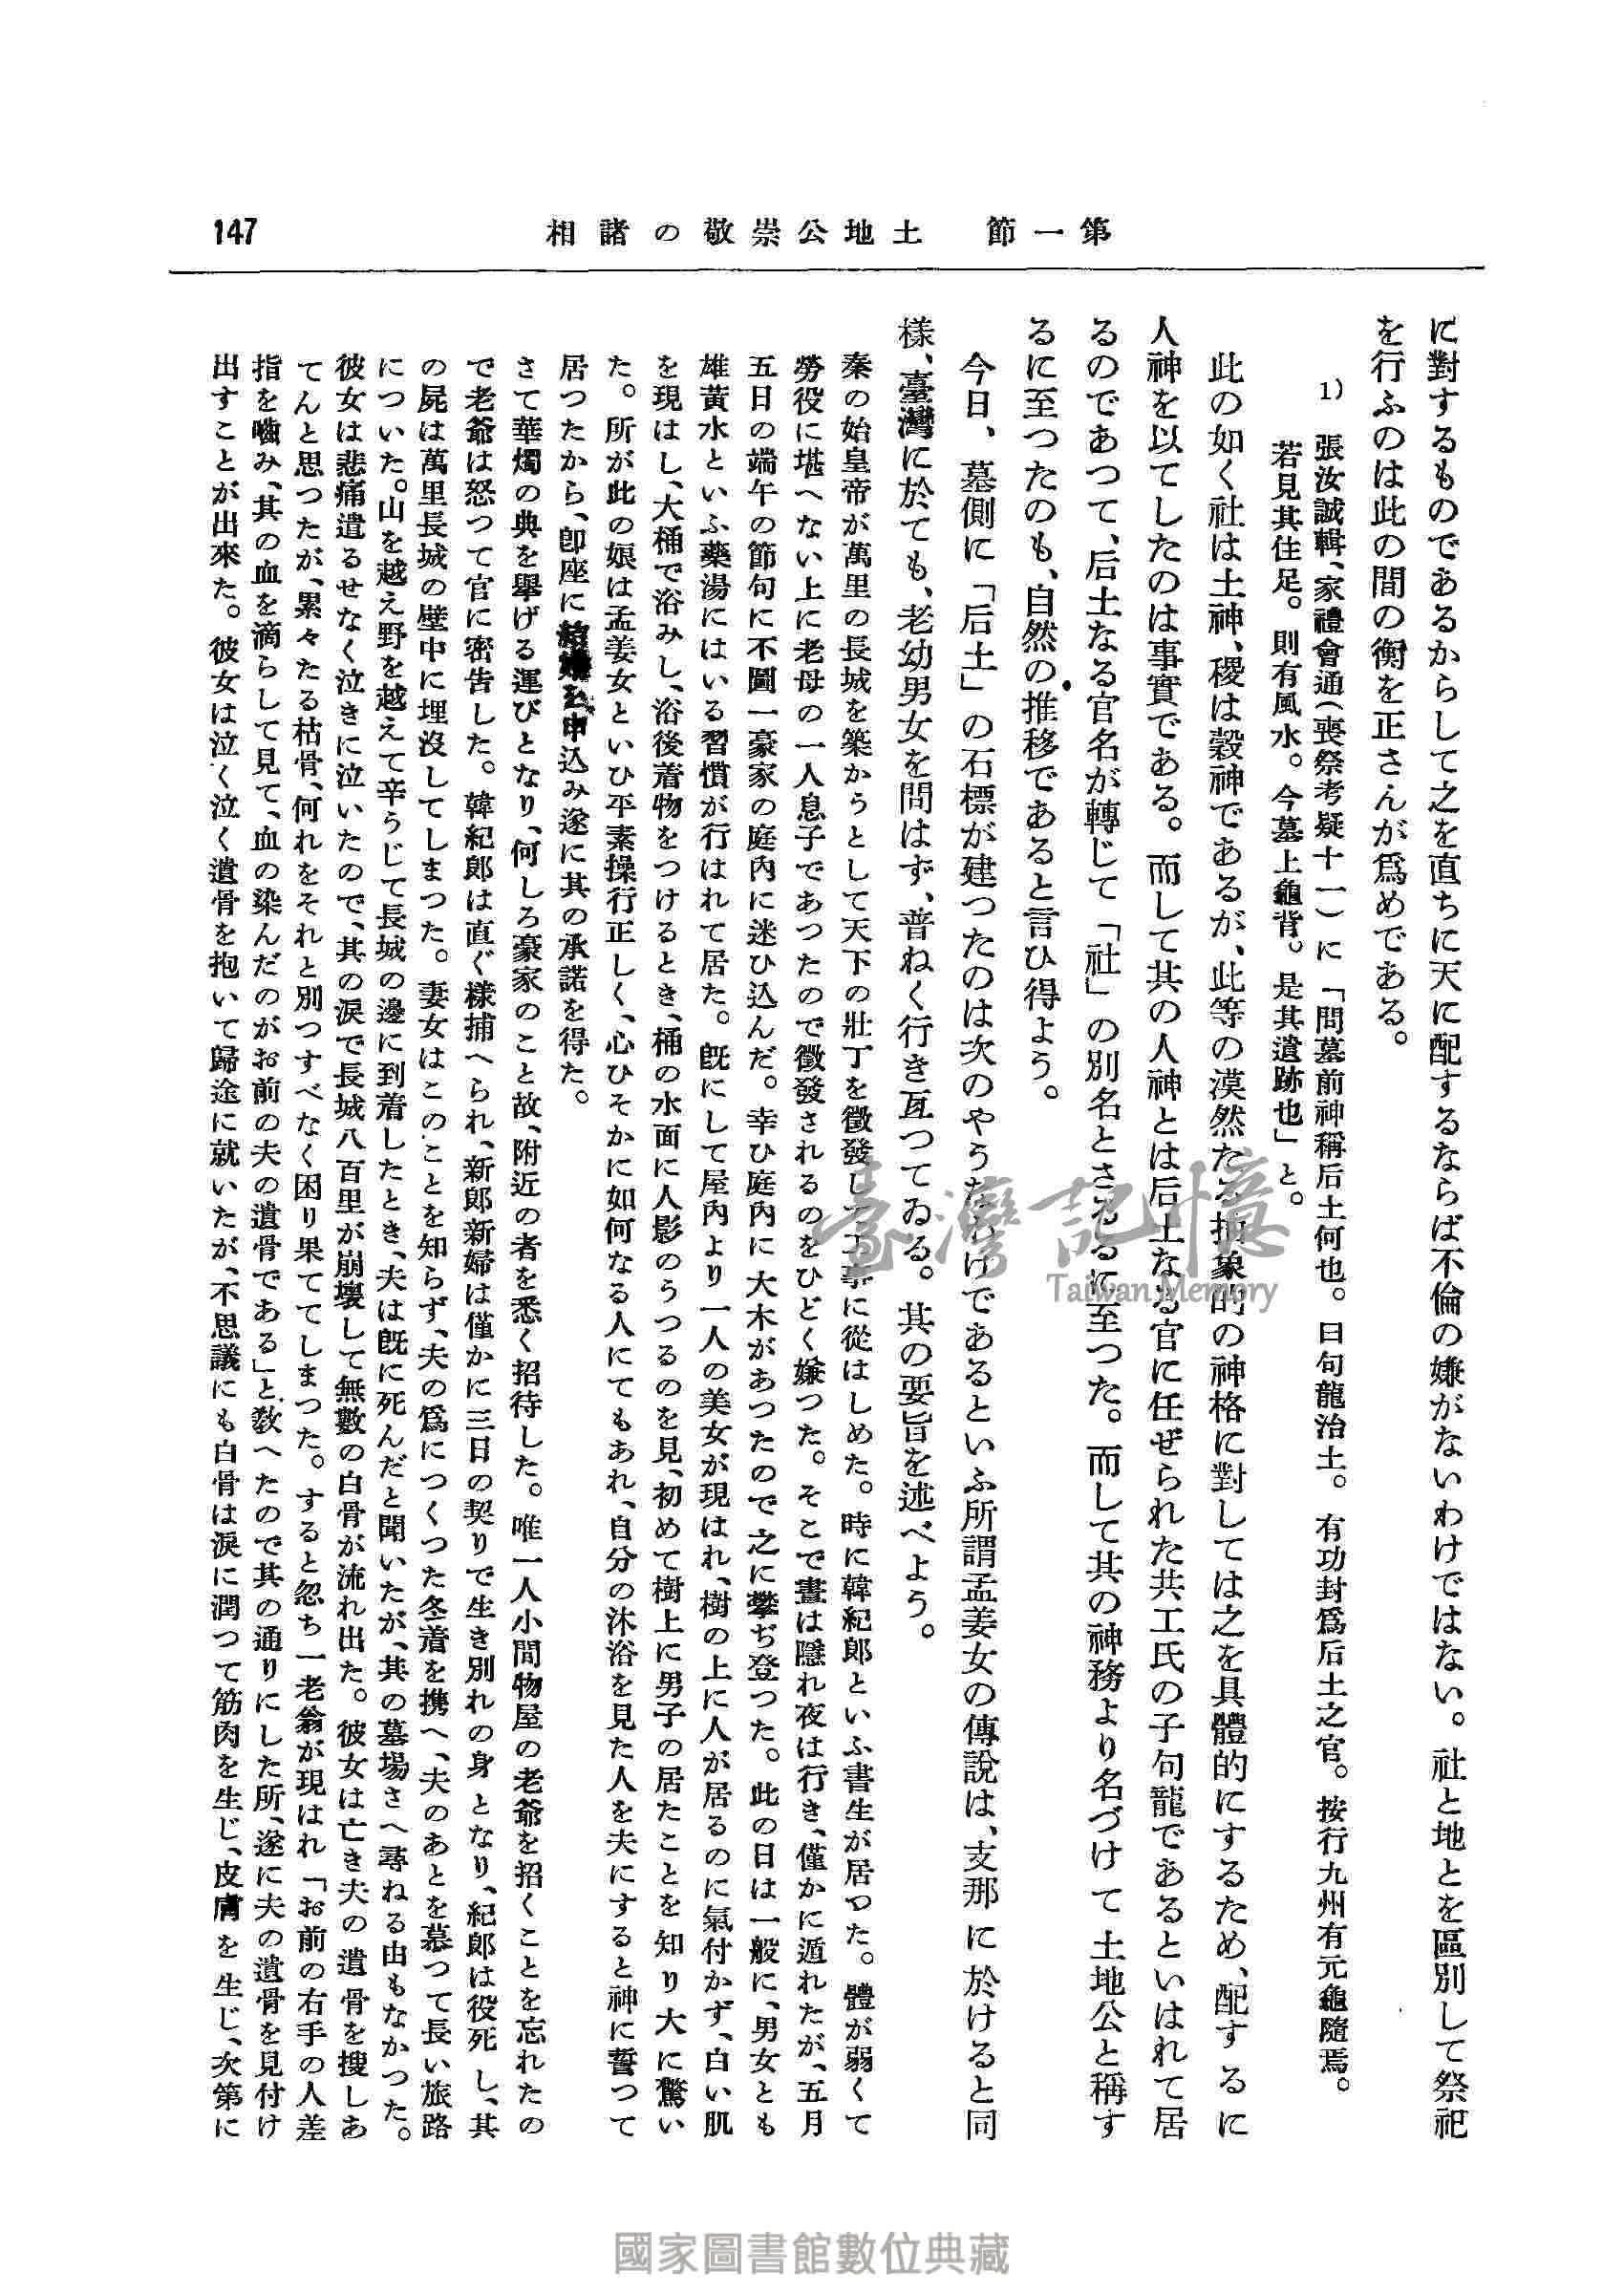 第一節 土地公崇敬の諸相
147
に對するものであるからして之を直ちに天に配するならば不倫の嫌がないわけではない。社と地とを區別して祭祀
を行ふのは此の間の衡を正さんが爲めである。
1) 張汝誠輯、家禮會通(喪祭考疑十一)に「問墓前神稱后土何也。曰句龍治土。有功封爲后土之官。按行九州有元龜隨焉。
若見其住足。則有風水。今墓上龜背。是其遺跡也」と。
此の如く社は土神、稷は穀神であるが、此等の漠然たる抽象的の神格に對しては之を具體的にするため、配するに
人神を以てしたのは事實である。而して其の人神とは后土なる官に任ぜられた共工氏の子句龍であるといはれて居
るのであつて、后土なる官名が轉じて「社」の別名とさるるに至つた。而して其の神務より名づけて土地公と稱す
るに至つたのも、自然の推移であると言ひ得よう。
今日、墓側に「后土」の石標が建つたのは次のやうなわけであるといふ所謂孟姜女の傳說は、支那に於けると同
樣、臺灣に於ても、老幼男女を問はず、普ねく行き亙つてゐる。其の要旨を述べよう。
秦の始皇帝が萬里の長城を築かうとして天下の壯丁を徵發して工事に從はしめた。時に韓紀郎といふ書生が居つた。體が弱くて
勞役に堪へない上に老母の一人息子であつたので徵發されるのをひどく嫌つた。そこで晝は隱れ夜は行き、僅かに遁れたが、五月
五日の端午の節句に不圖一豪家の庭內に迷ひ込んだ。幸ひ庭內に大木があつたので之に攀ぢ登つた。此の日は一般に、男女とも
雄黃水といふ藥湯にはいる習慣が行はれて居た。旣にして屋內より一人の美女が現はれ、樹の上に人が居るのに氣付かず、白い肌
を現はし、大桶で浴みし、浴後着物をつけるとき、桶の水面に人影のうつるのを見、初めて樹上に男子の居たことを知り大に驚い
た。所が此の娘は孟姜女といひ平素操行正しく、心ひそかに如何なる人にてもあれ、自分の沐浴を見た人を夫にすると神に誓つて
居つたから、卽座に結婚を申込み遂に其の承諾を得た。
さて華燭の典を擧げる運びとなり、何しろ豪家のこと故、附近の者を悉く招待した。唯一人小間物屋の老爺を招くことを忘れたの
で老爺は怒つて官に密告した。韓紀郎は直ぐ樣捕へられ、新郎新婦は僅かに三日の契りで生き別れの身となり、紀郎は役死し、其
の屍は萬里長城の壁中に埋沒してしまつた。妻女はこのことを知らず、夫の爲につくつた冬着を携へ、夫のあとを慕つて長い旅路
についた。山を越え野を越えて辛うじて長城の邊に到着したとき、夫は旣に死んだと聞いたが、其の墓場さへ尋ねる由もなかつた。
彼女は悲痛遣るせなく泣きに泣いたので、其の淚で長城八百里が崩壞して無數の白骨が流れ出た。彼女は亡き夫の遺骨を搜しあ
てんと思つたが、累々たる枯骨、何れをそれと別つすべなく困り果ててしまつた。すると忽ち一老翁が現はれ「お前の右手の人差
指を嚙み、其の血を滴らして見て、血の染んだのがお前の夫の遺骨である」と敎へたので其の通りにした所、遂に夫の遺骨を見付け
出すことが出來た。彼女は泣く泣く遺骨を抱いて歸途に就いたが、不思議にも白骨は淚に潤つて筋肉を生じ、皮膚を生じ、次第に
臺灣記憶
Taiwan Memory
國家圖書館數位典藏